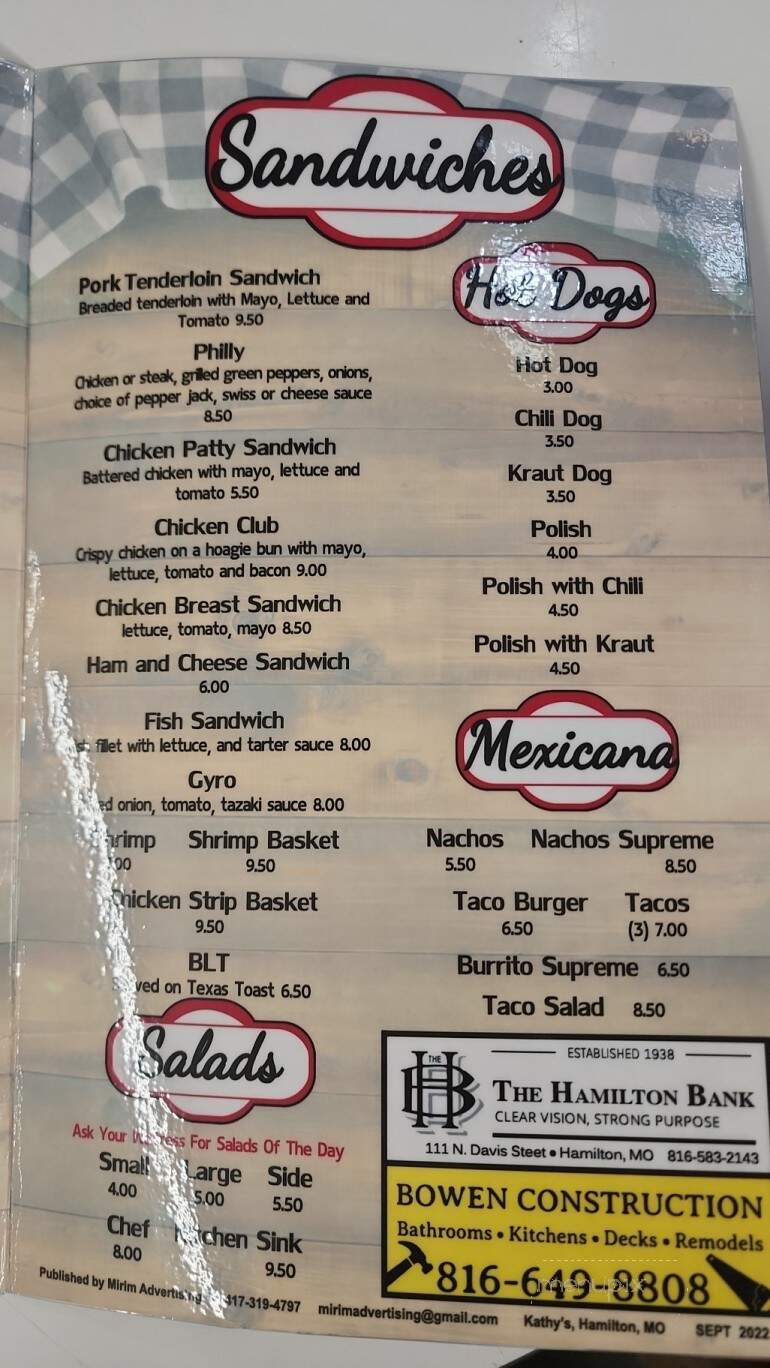 Sandwiches
Pork Tenderloin Sandwich
Breaded tenderloin with Mayo, Lettuce and
Tomato 9.50
Philly
Chicken or steak, grilled green peppers, onions,
choice of pepper jack, swiss or cheese sauce
8.50
Chicken Patty Sandwich
Battered chicken with mayo, lettuce and
tomato 5.50
Chicken Club
Crispy chicken on a hoagie bun with mayo,
lettuce, tomato and bacon 9.00
Chicken Breast Sandwich
lettuce, tomato, mayo 8.50
Ham and Cheese Sandwich
6.00
Fish Sandwich
fillet with lettuce, and tarter sauce 8.00
Gyro
onion, tomato, tazaki sauce 8.00
Shrimp Shrimp Basket
9.50
Chicken Strip Basket
9.50
BLT
Served on Texas Toast 6.50
Hot Dogs
Hot Dog
3.00
Chili Dog
3.50
Kraut Dog
3.50
Polish
4.00
Polish with Chili
4.50
Polish with Kraut
4.50
Mexicana
Nachos Nachos Supreme
5.50 8.50
Taco Burger Tacos
6.50 (3) 7.00
Burrito Supreme 6.50
Taco Salad 8.50
Salads
Ask Your Waitress For Salads Of The Day
Small Large Side
4.00 5.00 5.50
Chef Kitchen Sink
8.00 9.50
THE
HB
ESTABLISHED 1938
THE HAMILTON BANK
CLEAR VISION, STRONG PURPOSE
111 N. Davis Steet • Hamilton, MO 816-583-2143
BOWEN CONSTRUCTION
Bathrooms • Kitchens • Decks • Remodels
816-649-8808
menupix
Published by Mirim Advertising 417-319-4797 mirimadvertising@gmail.com Kathy's, Hamilton, MO SEPT 2022